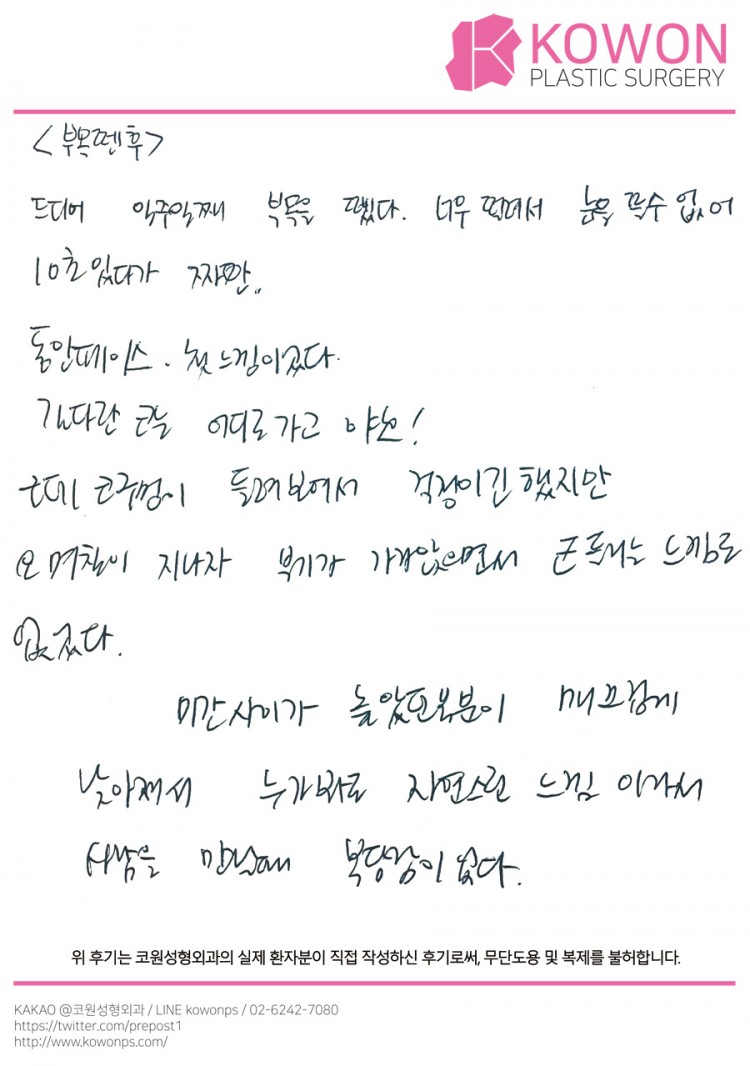 KOWON
PLASTIC SURGERY
<부목뗀후>
드디어 일주일째 부목을 뗐다. 너무 떨려서 눈을 뜰수 없어
10초 있다가 짜짠..
동안페이스. 첫느낌이였다.
커다란 코는 어디로가고 야호!
근데 콧구멍이 들려보여서 걱정이긴 했지만
몇일이 지나자 붓기가 가라앉으면서 느낌도
없어졌다.
미간사이가 높았던부분이 매끄럽게
낮아져서 누가봐도 자연스런 느낌 이여서
사람을 만날때 부담감이 없다.
위 후기는 코원성형외과의 실제 환자분이 직접 작성하신 후기로써, 무단도용 및 복제를 불허합니다.
KAKAO @코원성형외과 / LINE kowonps / 02-6242-7080
https://twitter.com/prepost1
http://www.kowonps.com/